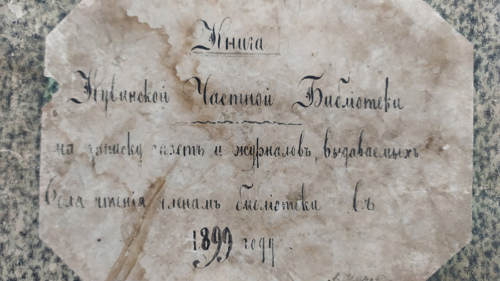 Книга
Кувинской Частной Библіотеки
на записку газетъ и журналовъ, выдаваемыхъ
для чтенія членамъ библіотеки въ
1899 году.